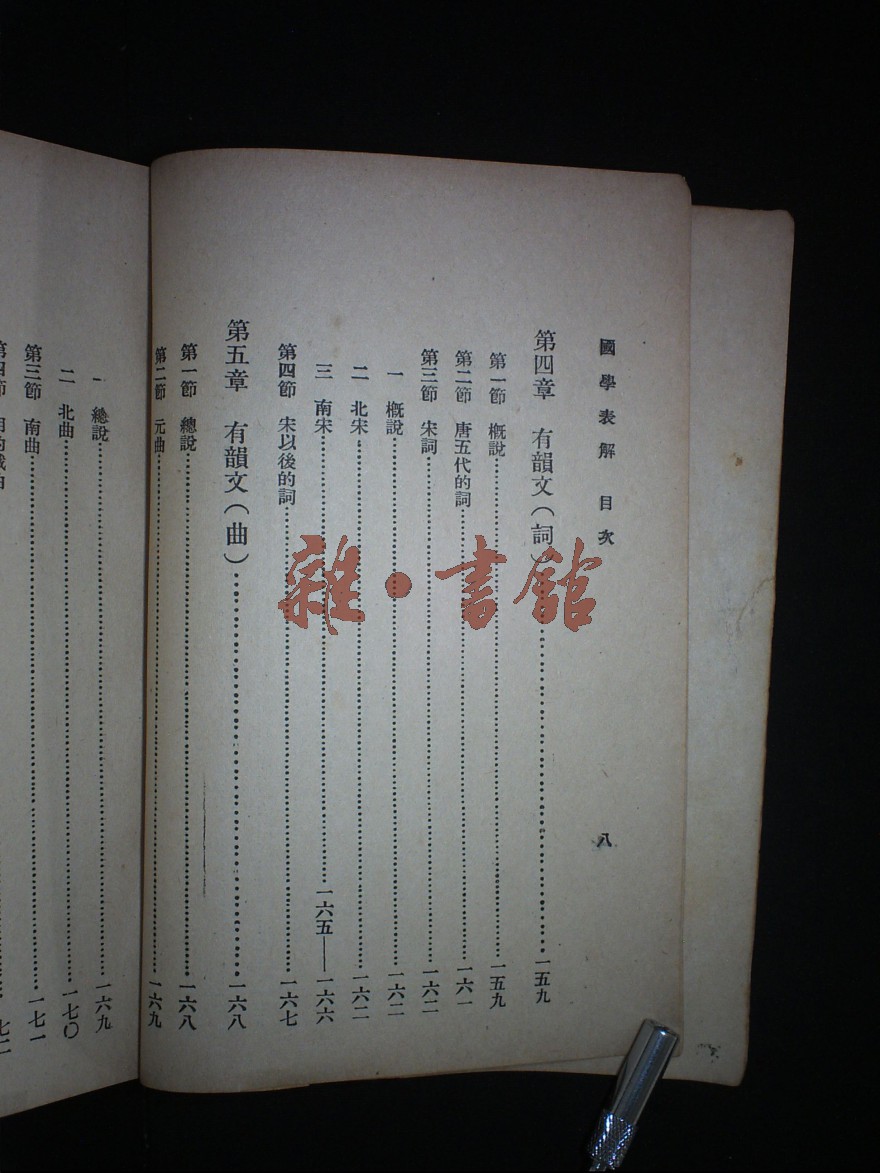 國學表解 目次 八
第四章 有韻文(詞)……一五九
第一節 概說……一五九
第二節 唐五代的詞……一六一
第三節 宋詞……一六二
一 概說……一六二
二 北宋……一六二
三 南宋……一六五—一六六
第四節 宋以後的詞……一六七
第五章 有韻文(曲)……一六八
第一節 總說……一六八
第二節 元曲……一六九
一 總說……一六九
二 北曲……一七〇
第三節 南曲……一七一
雜·書館